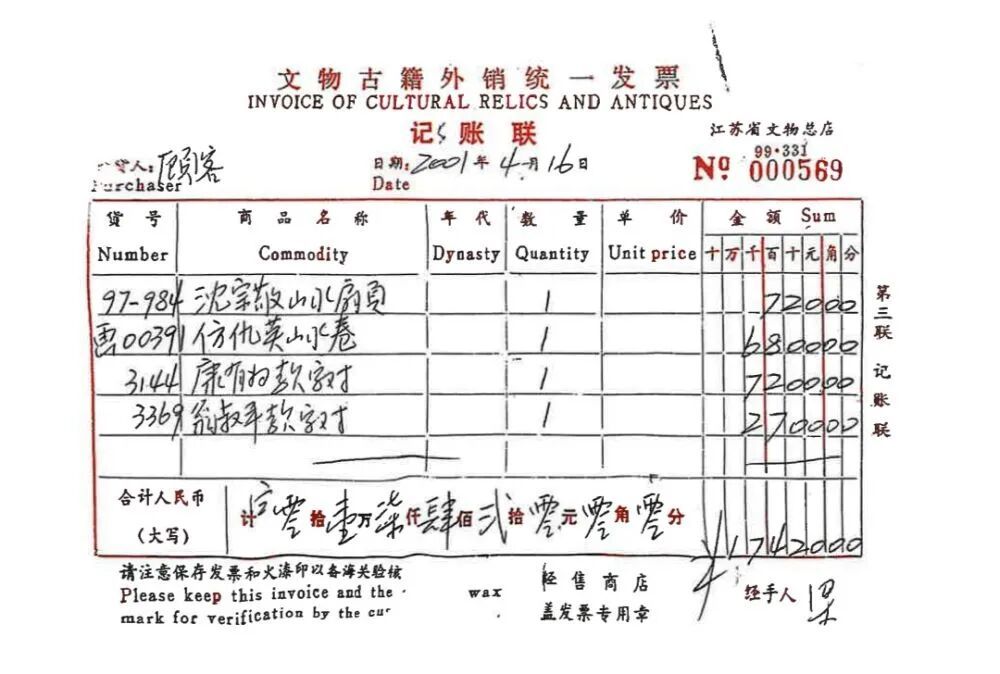 文物古籍外销统一发票
INVOICE OF CULTURAL RELICS AND ANTIQUES
记账联
江苏省文物总店
货人:顾客
Purchaser
日期:2001年4月16日
Date
99·331
Nº 000569
货号 商品名称 年代 数量 单价 金额 Sum
Number Commodity Dynasty Quantity Unit price 十万千百十元角分
97-984 沈宗敬山水扇頁 1 72000
画00391 仿仇英山水卷 1 680000
3144 康有为款字对 1 720000
3369 翁叔平款字对 1 270000
合计人民币
(大写)
计零拾壹万柒仟肆佰贰拾零元零角零分
¥1742000
第三联 记账联
请注意保存发票和火漆印以备海关验核
Please keep this invoice and the wax
mark for verification by the cus
经售商店
盖发票专用章
经手人 梁